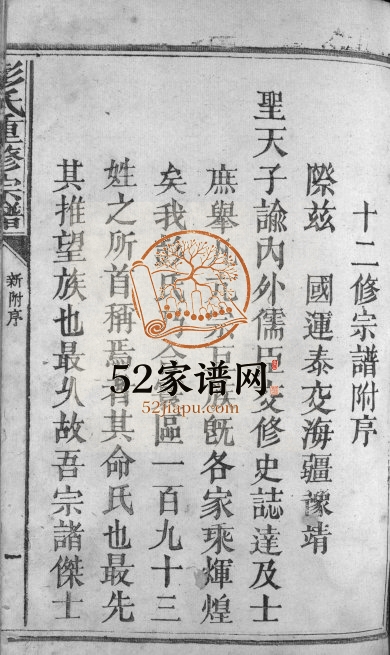 十二修宗譜附序
際茲 國運泰交海疆豫靖
聖天子諭內外儒臣交修史誌達及士
庶舉凡巨族既各家乘輝煌
矣我彭氏區一百九十三
姓之所首稱焉者其命氏也最先
其推望族也最久故吾宗諸傑士
彭氏重修宗譜
新附序
一
52家谱网
52jiapu.com